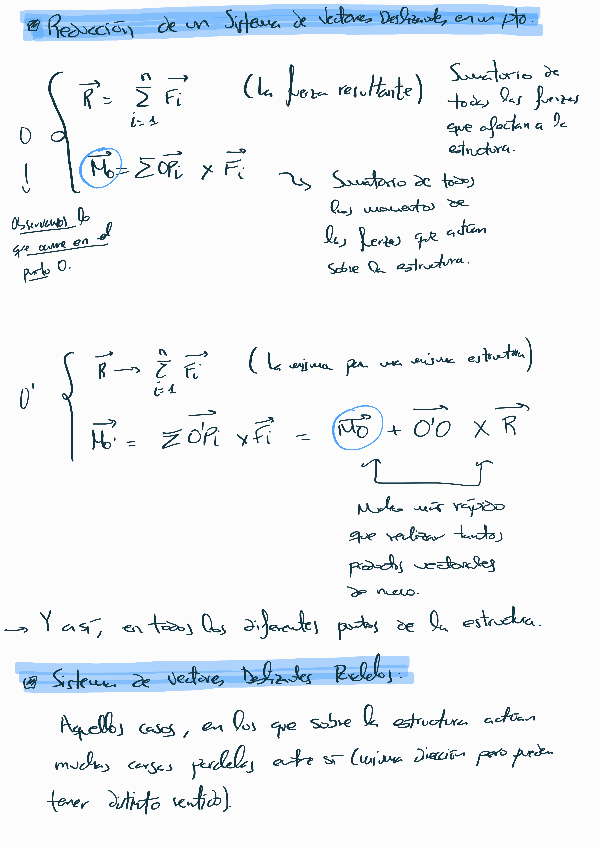 Reducción de un Sistema de Vectores Deslizantes en un pto.
R = Σ Fi (La fuerza resultante)
n
i=1
Sumatorio de
todas las fuerzas
que afectan a la
estructura.
O
Mo = Σ OPi × Fi
Sumatorio de todos
los momentos de
las fuerzas que actúan
sobre la estructura.
Observamos lo
que ocurre en el
punto O.
O'
R → Σ Fi (La misma para una misma estructura)
n
i=1
Mo' = Σ O'Pi × Fi = Mo + O'O × R
más rápido
que realizar tantos
productos vectoriales
de nuevo.
→ Y así, en todos los diferentes puntos de la estructura.
Sistema de Vectores Deslizantes Paralelos.
Aquellos casos, en los que sobre la estructura actúan
muchas cargas paralelas entre sí (misma dirección pero pueden
tener distinto sentido).